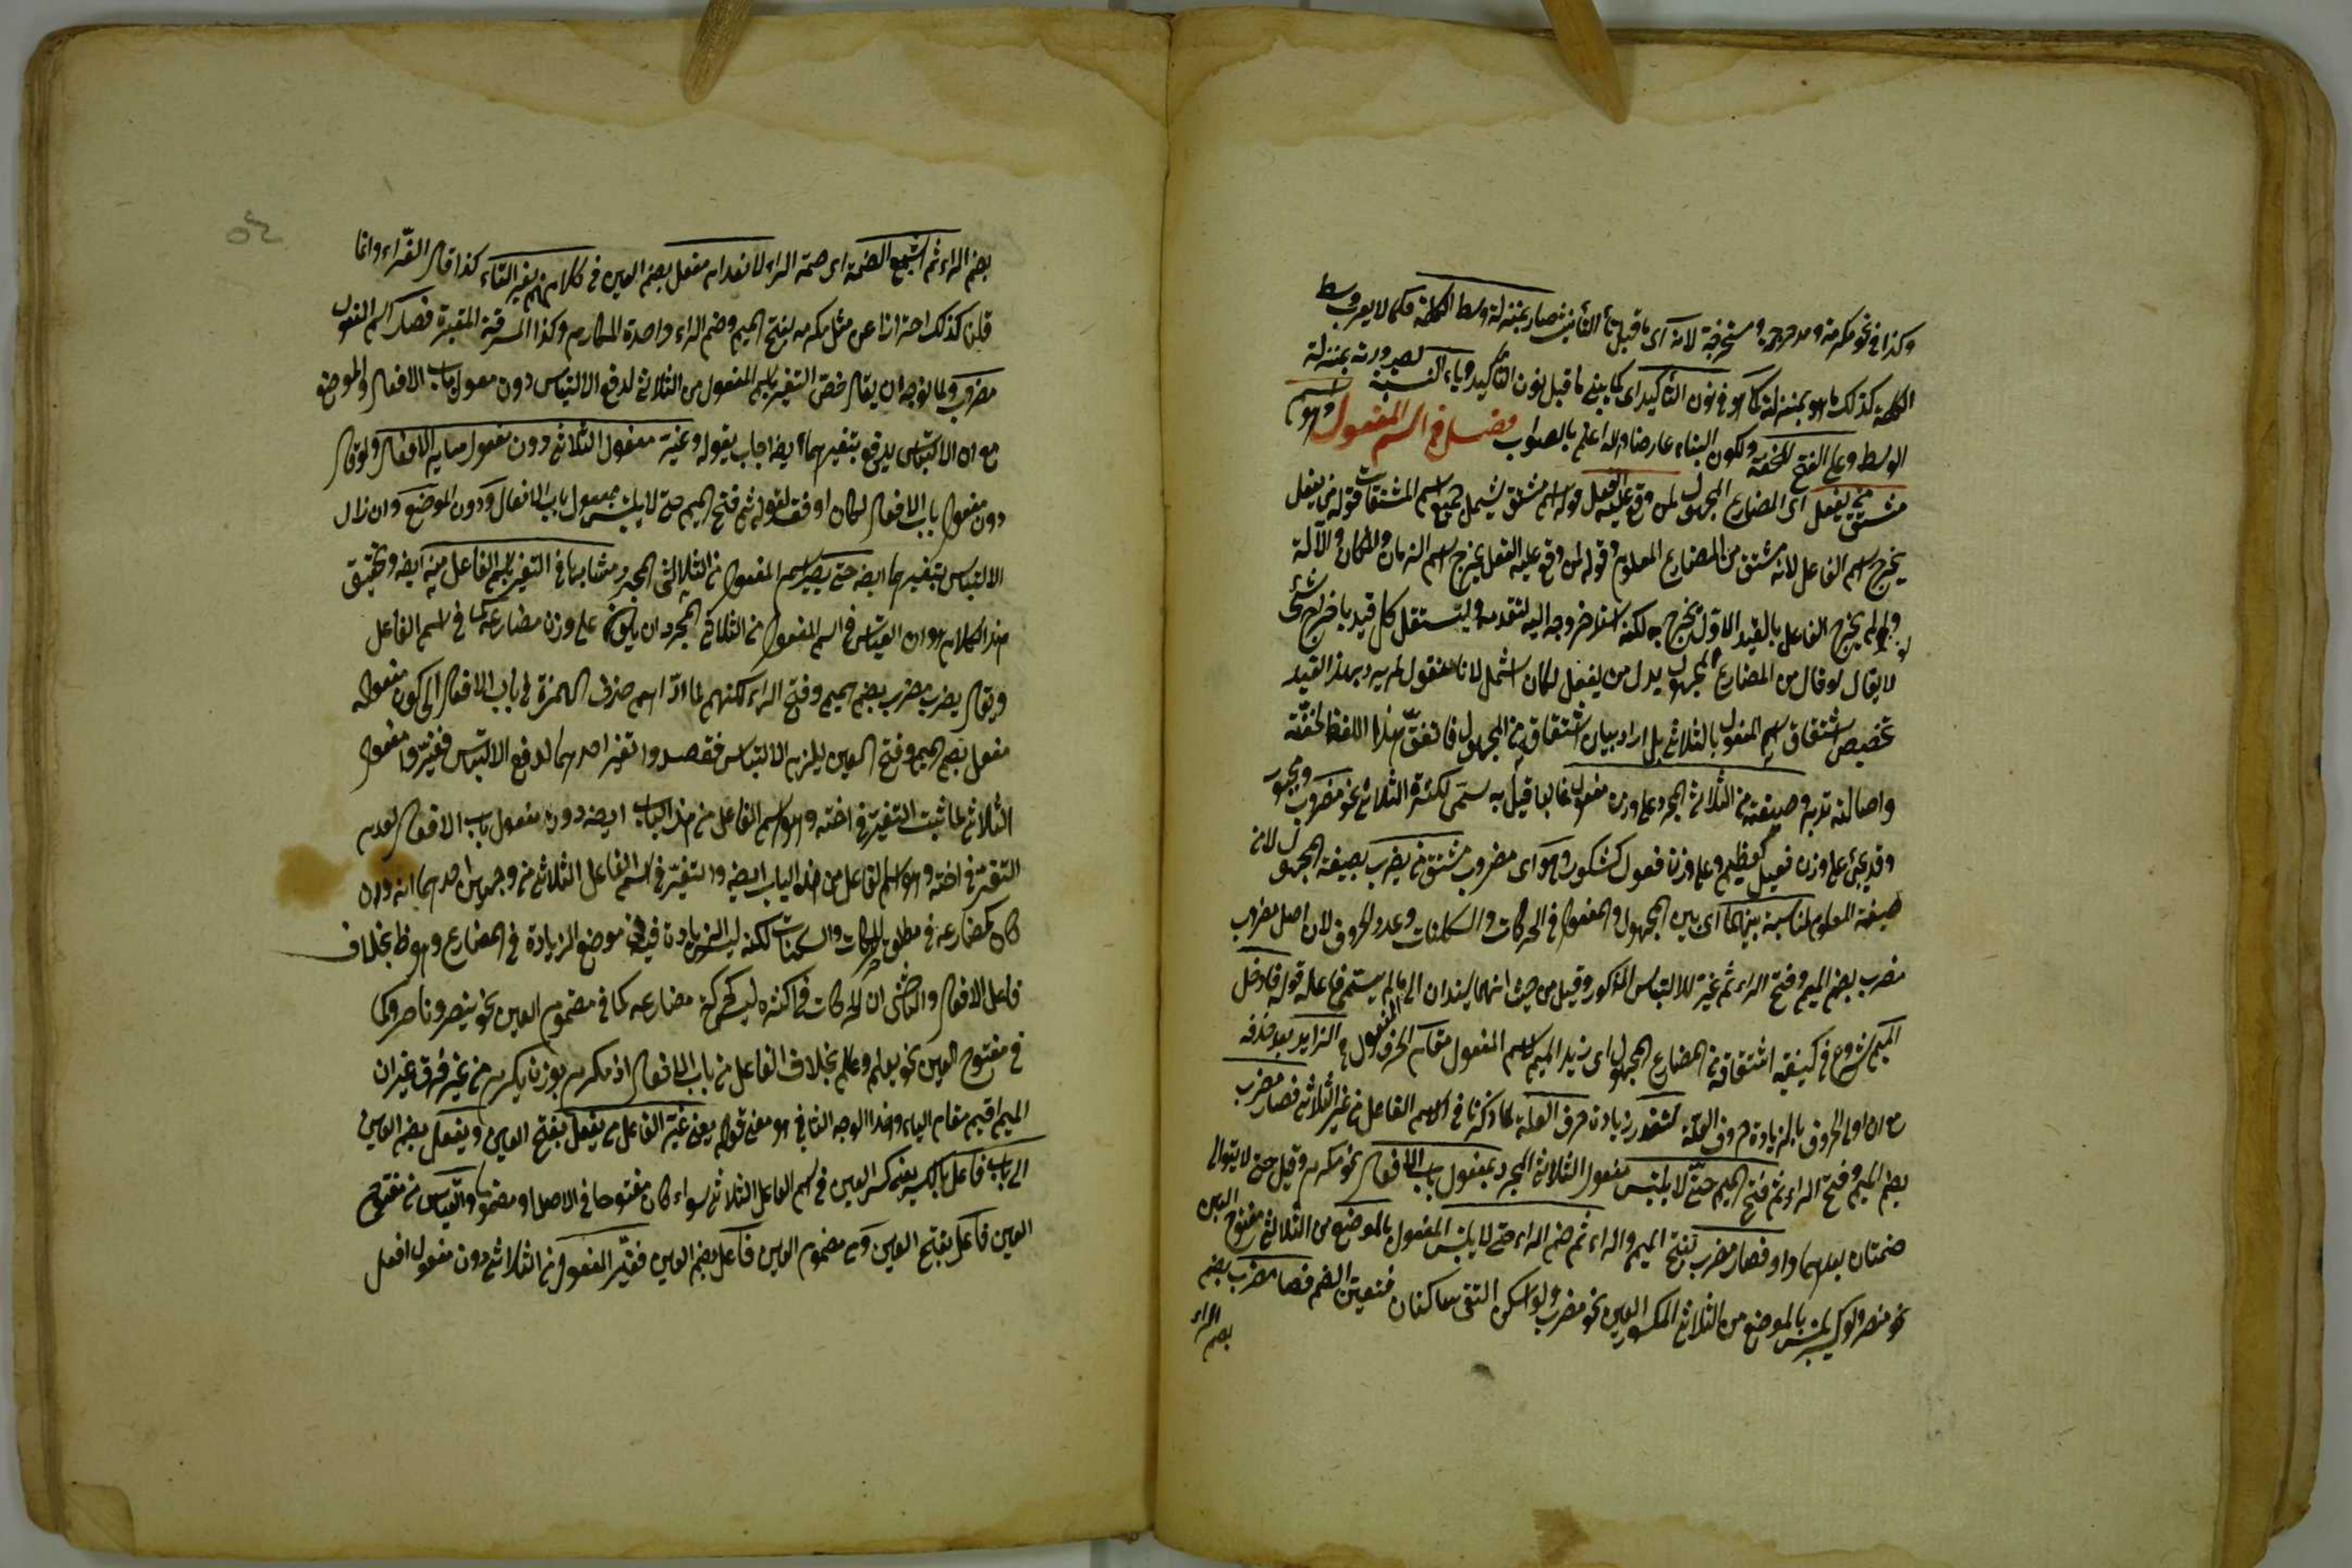 وكذا في نحو مكرمة ومدحرجة ومستخرجة لانه اى ما قبل تاء التأنيث صار بمنزلة وسط الكلمة فكما لا يعرب وسط
الكلمة كذلك ما هو بمنزلته كما هو في نون التأكيد اى كما يبنى ما قبل نون التأكيد وياء النسبة لصيرورته بمنزلة
الوسط وعلى الفتح للخفة ولكون البناء عارضا والله اعلم بالصواب فصل في اسم المفعول وهو اسم
مشتق من يفعل اى المضارع المجهول لمن وقع عليه الفعل قوله اسم مشتق يشمل جميع اسم المشتقات قوله من يفعل
يخرج اسم الفاعل لانه مشتق من المضارع المعلوم وقوله لمن وقع عليه الفعل يخرج اسم الزمان والمكان والآلة
ولو لم يخرج الفاعل بالقيد الاول يخرج به لكنه اسند خروجه اليه لتقدمه وليستقل كل قيد باخراج شئ
لا يقال لو قال من المضارع المجهول بدل من يفعل لكان اشمل لانا نقول لم يرد بهذا القيد
تخصيص اشتقاق اسم المفعول بالثلاثي بل اراد بيان اشتقاقه من المجهول فاتفق هذا اللفظ لخفته
واصالته تدبر وصيغته من الثلاثي المجرد على وزن مفعول غالبا قيل به سمى لكثرة الثلاثي نحو مضروب ومجبور
وقد يجئ على وزن فعيل كعظيم وعلى وزن فعول كشكور وهو اى مضروب مشتق من يضرب بصيغة المجهول لان
صيغة المعلوم لمناسبة بينهما اى بين المجهول والمفعول في الحركات والسكنات وعدد الحروف لان اصل مضروب
مضرب بضم الميم وفتح الراء ثم غير للالتباس المذكور وقيل من حيث انهما يسندان الى ما لم يسم فاعله قوله فادخل
الميم شروع في كيفية اشتقاقه من المضارع المجهول اى زيد الميم لاسم المفعول مقام الحرف الزايد بعد حذفه
مع ان اولى الحروف بالزيادة حروف العلة لتعذر زيادة حرف العلة كما ذكرنا في اسم الفاعل من غير الثلاثي فصار مضرب
بضم الميم وفتح الراء ثم فتح الميم حتى لا يلتبس مفعول الثلاثي المجرد بمفعول باب الافعال نحو مكرم وقيل حتى لا يتوالى
ضمتان بعدهما واو فصار مضرب بفتح الميم والراء ثم ضم الراء حتى لا يلتبس المفعول بالموضع من الثلاثي مفتوح العين
نحو منصر ولو كسر يلتبس بالموضع من الثلاثي المكسور العين نحو مضرب ولو اسكن التقى ساكنان فتعين الضم فصار مضرب بضم
بضم الراء
بضم الراء ثم اشبع الضمة اى ضمة الراء لانعدام مفعل بضم العين في كلامهم بغير التاء كذا قال الفراء وانما
قلنا كذلك احترازا عن مثل مكرمة بفتح الميم وضم الراء واحدة المكارم وكذا المسرقة المقبرة فصار اسم المفعول
مضروب ولما توجه ان يقال خص التغير باسم المفعول من الثلاثي لدفع الالتباس دون مفعول باب الافعال والموضع
مع ان الالتباس يدفع بتغيرهما ايضا اجاب بقوله وغير مفعول الثلاثي دون مفعول ساير الافعال ولو قال
دون مفعول باب الافعال لكان اوفق لقوله ثم فتح الميم حتى لا يلتبس بمفعول باب الافعال ودون الموضع وان زال
الالتباس بتغيرهما ايضا حتى يصير اسم المفعول من الثلاثي المجرد مشابها في التغير باسم الفاعل منه ايضا وتحقيق
هذا الكلام هو ان القياس في اسم المفعول من الثلاثي المجرد ان يكون على وزن مضارعه كما في اسم الفاعل
ويقال يضرب مضرب بضم الميم وفتح الراء لكنهم لما ادّاهم حذف الهمزة في باب الافعال الى كون مفعوله
مفعل بضم الميم وفتح العين يلزم الالتباس فقصدوا تغير احدهما لدفع الالتباس فغيروا مفعول
الثلاثي لما ثبت التغير في اخته وهو اسم الفاعل من هذا الباب ايضا دون مفعول باب الافعال لعدم
التغير في اخته وهو اسم الفاعل من هذا الباب ايضا والتغير في اسم الفاعل الثلاثي من وجهين احدهما انه وان
كان كمضارعه في مطلق الحركات والسكنات لكنه ليس الزيادة فيه في موضع الزيادة في المضارع وهو ظ بخلاف
فاعل الافعال والثاني ان الحركات في اكثره ليس كحركة مضارعه كما في مضموم العين نحو ينصر وناصر وكما
في مفتوح العين نحو يعلم وعالم بخلاف الفاعل من باب الافعال اذ مكرم بوزن يكرم من غير فرق غير ان
الميم اقيم مقام الياء وهذا الوجه الثاني هو معنى قوله يعنى غير الفاعل من يفعل بفتح العين ويفعل بضم العين
الى باب فاعل بالكسر يعنى كسر العين في اسم الفاعل الثلاثي سواء كان مفتوحا في الاصل او مضموما والقياس من مفتوح
العين فاعل بفتح العين ومن مضموم العين فاعل بضم العين فغير المفعول من الثلاثي دون مفعول افعل